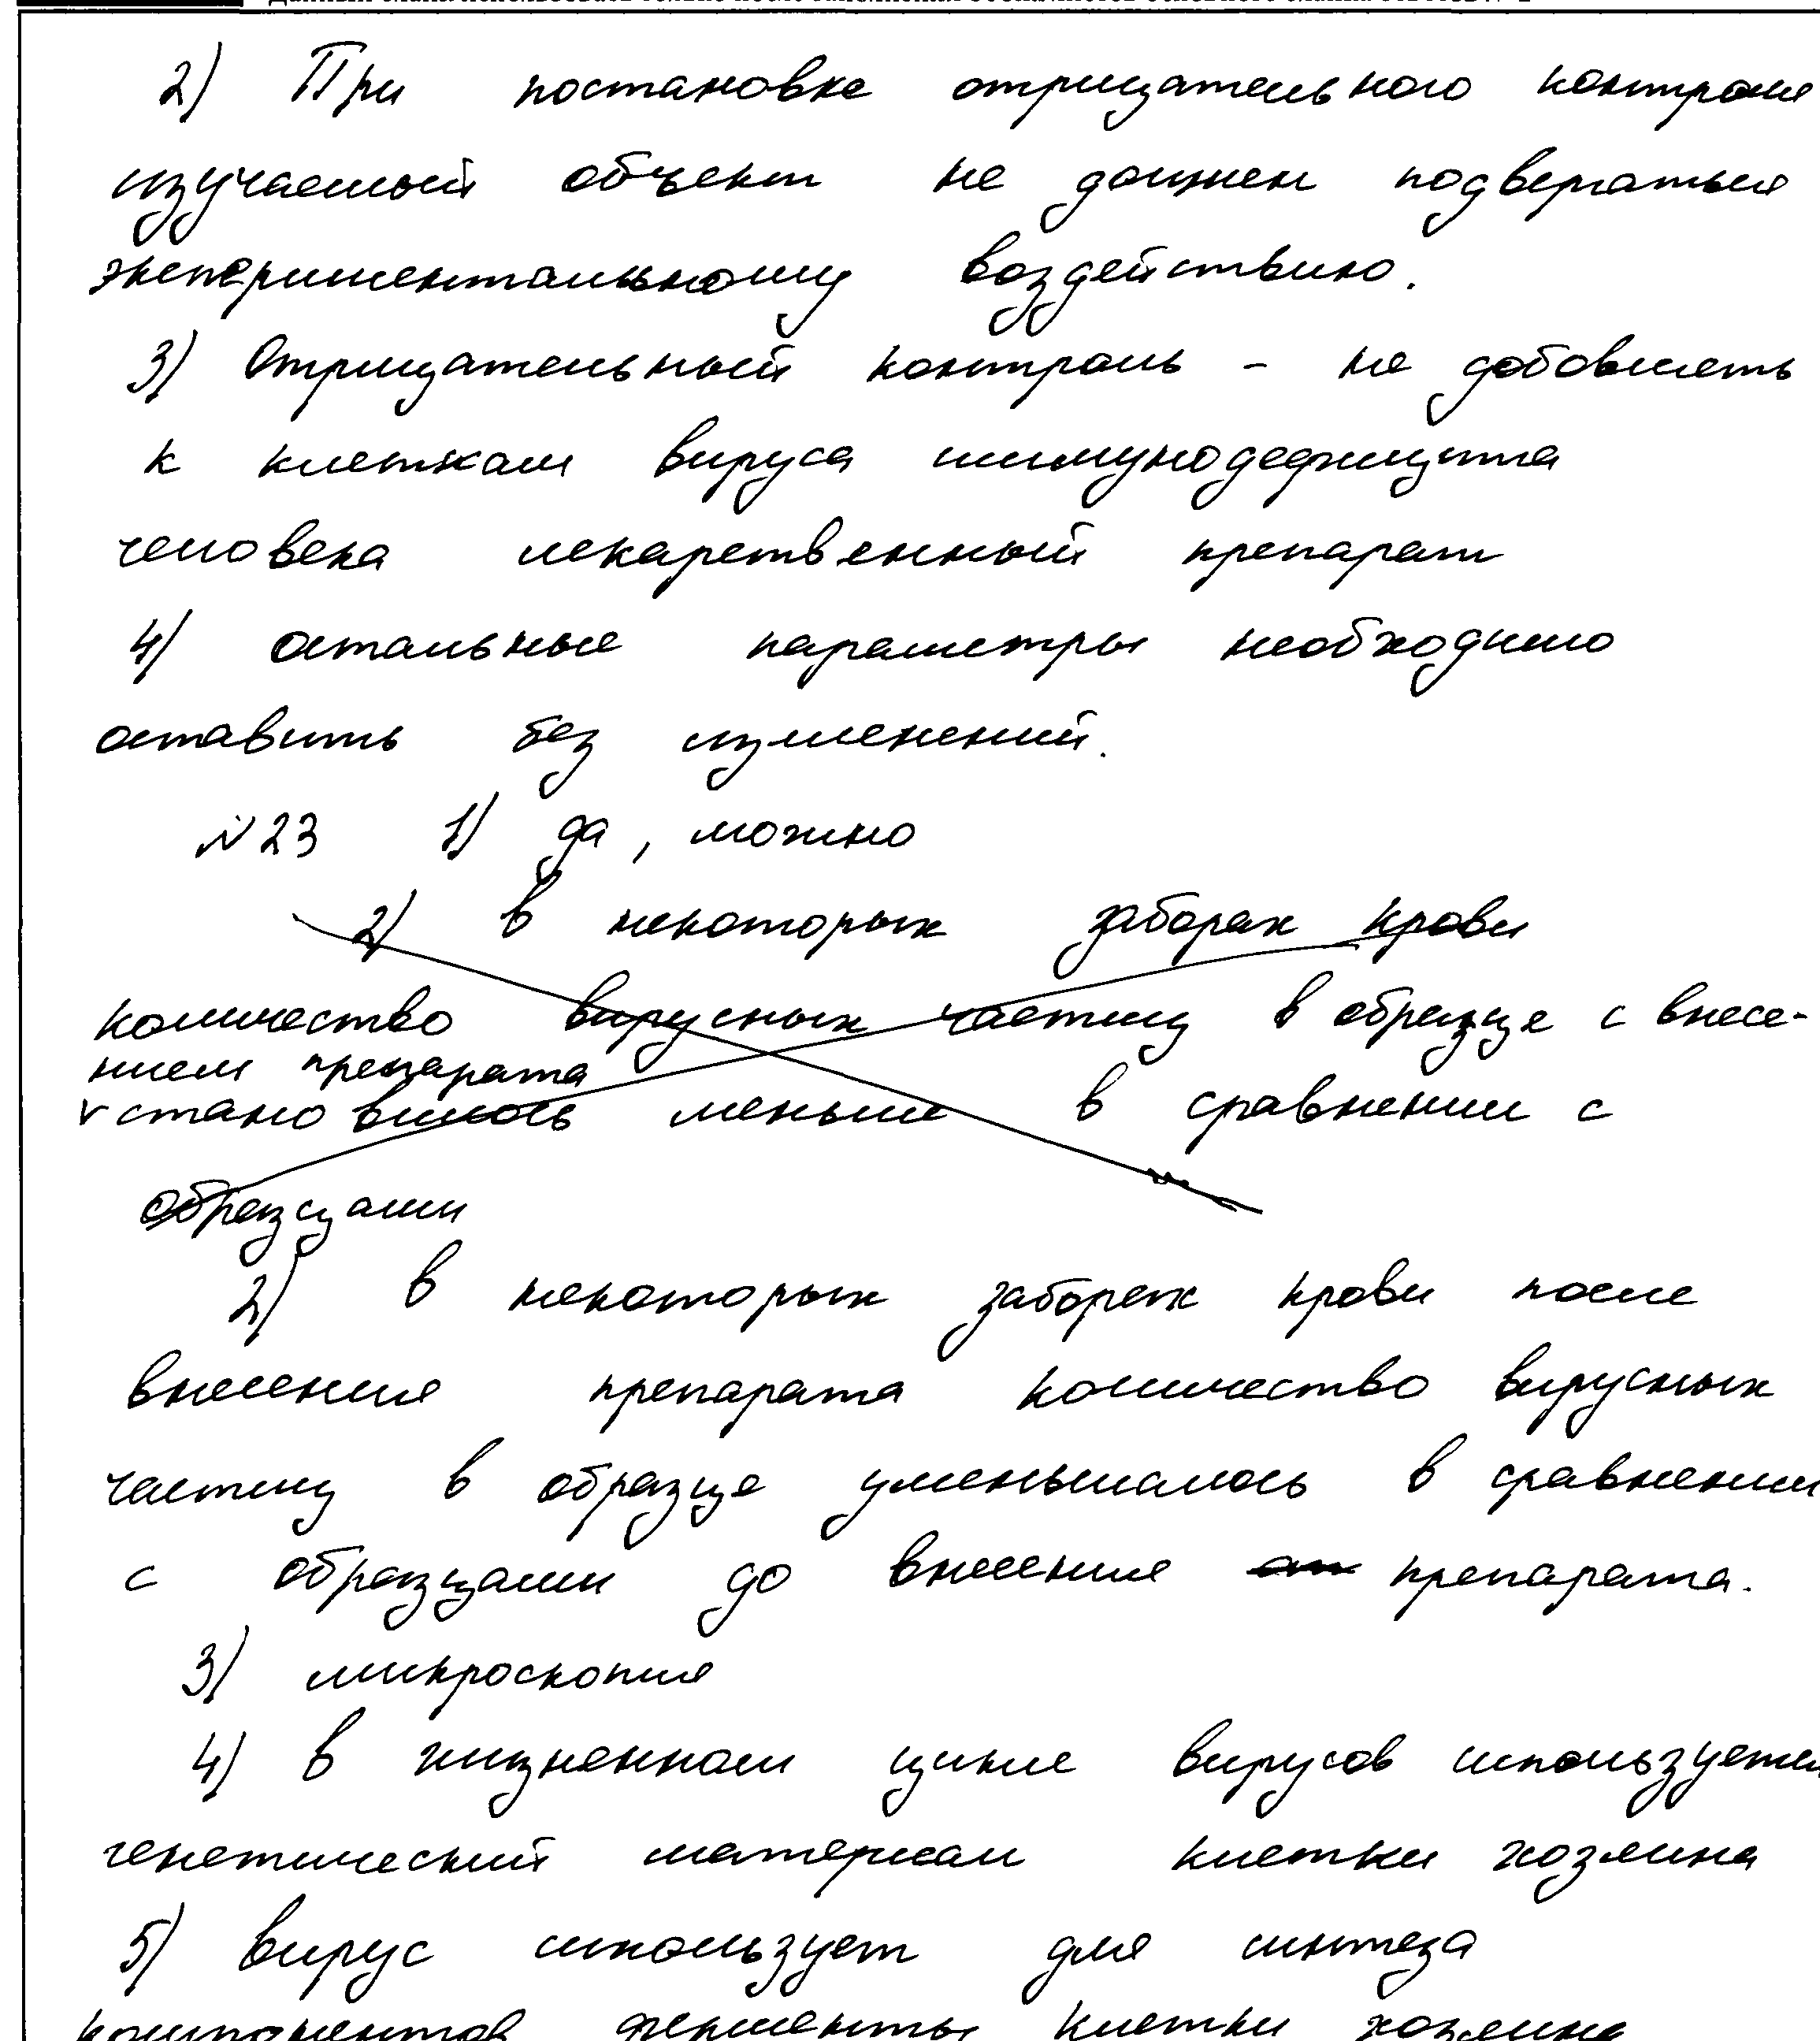 2) При постановке отрицательного контроля
изучаемый объект не должен подвергаться
экспериментальному воздействию.
3) Отрицательный контроль - не добовлять
к клеткам вируса иммунодефицита
человека лекарственный препарат
4) остальные параметры необходимо
оставить без изменений.
№23 1) да, можно
2) в некоторых заборах крови
количество вирусных частиц в образце с внесе-
нием препарата
v становилось меньше в сравнении с
образцами
2) в некоторых заборах крови после
внесения препарата количество вирусных
частиц в образце уменьшалось в сравнении
с образцами до внесения препарата.
3) микроскопия
4) в жизненном цикле вирусов используется
генетический материал клетки хозяина
5) вирус использует для синтеза
компонентов ферменты клетки хозяина